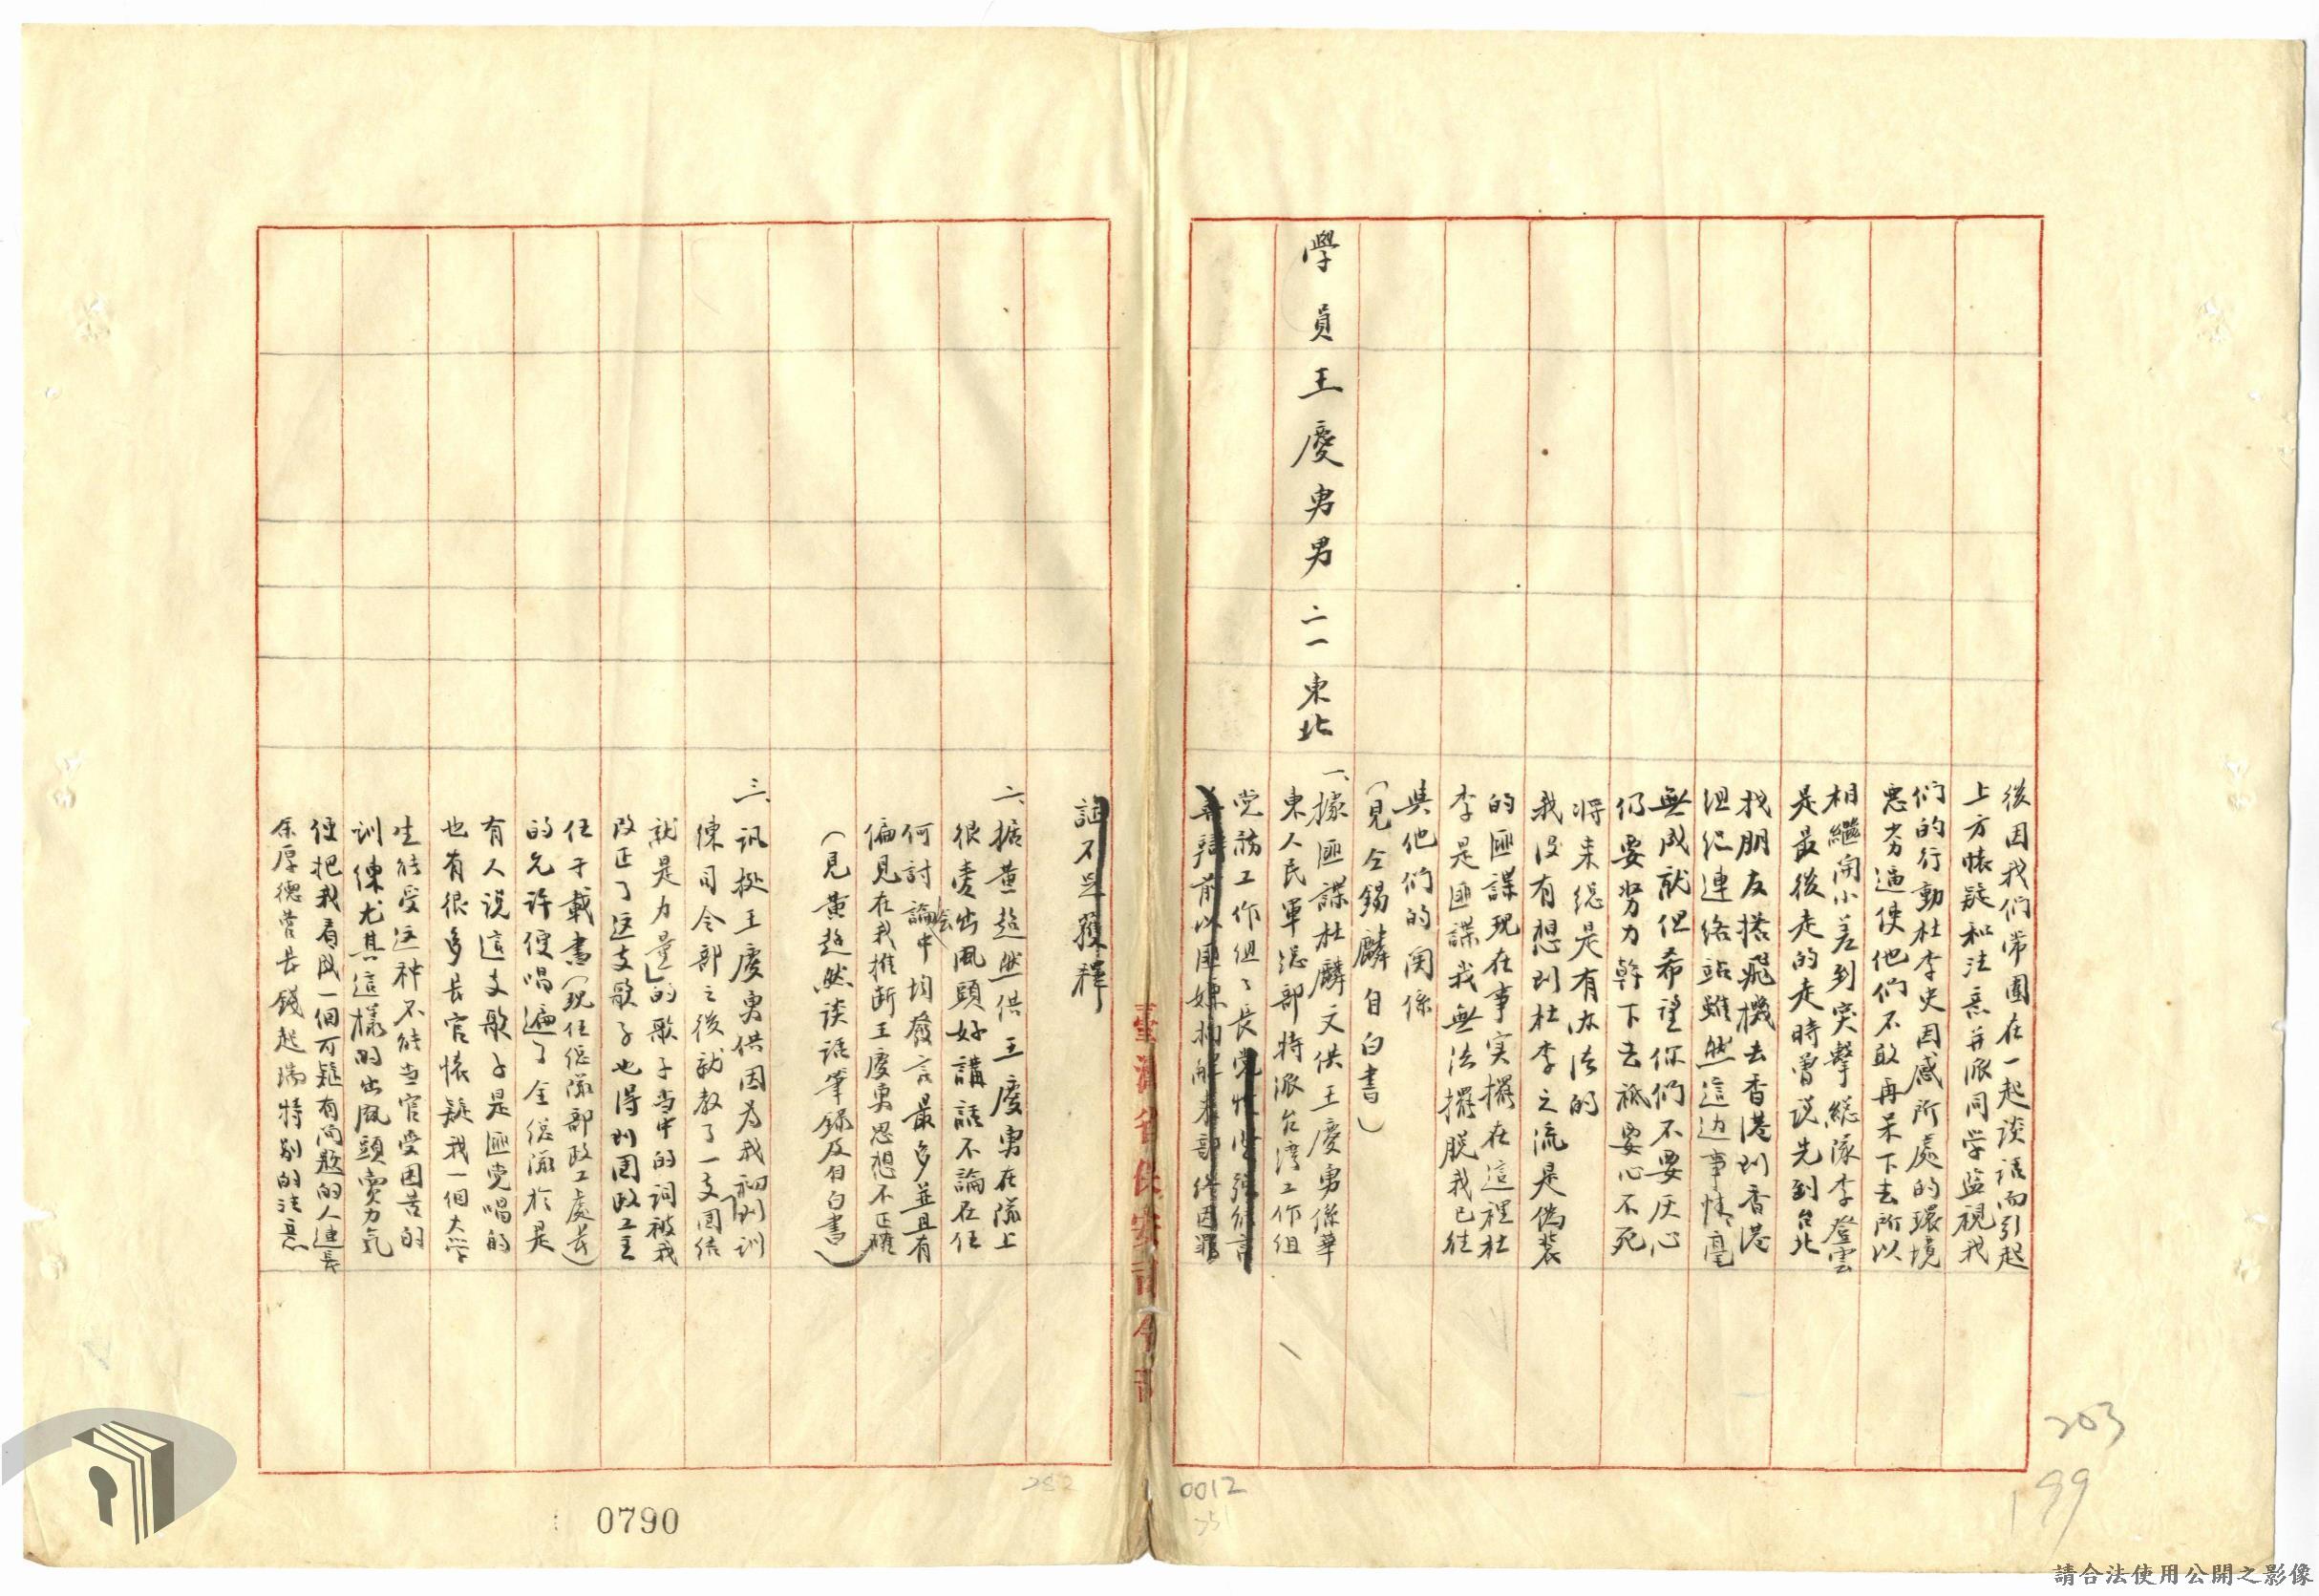 後因我們常圍在一起談話而引起
上方懷疑和注意并派同学監視我
們的行動杜李史因感所處的環境
惡劣逼使他們不敢再呆下去所以
相繼開小差到突擊総隊李登雲
是最後走的走時曾说先到台北
找朋友搭飛機去香港到香港
组织連络站雖然這边事情毫
無成就但希望你們不要灰心
仍要努力幹下去祗要心不死
将来総是有办法的
我没有想到杜李之流是偽装
的匪諜現在事实擺在這裡杜
李是匪諜我無法擺脱我已往
與他們的関係
（見仝錫麟自白書）
學員王慶勇男二一東北
一、據匪諜杜麟文供王慶勇係華
東人民軍総部特派台湾工作组
党務工作组、長
前以匪嫌拘解本部終因罪
証不足獲釋
二、據黄超然供王慶勇在隊上
很爱出風頭好講話不論在任
何討論会中均發言最多並且有
偏見在我推断王慶勇思想不正確
（見黄超然谈话筆録及自白書）
三、訊據王慶勇供因為我初到训
練司令部之後就教了一支「团结
就是力量」的歌子当中的词被我
改正了这支歌子也得到团政工主
任于載書（现任総隊部政工處長）
的允许便唱遍了全総隊於是
有人说這支歌子是匪党唱的
也有很多長官懷疑我一個大学
生能受这种不能当官受困苦的
训練尤其這樣的出風頭賣力氣
便把我看成一個可疑有问题的人連長
余厚德營長錢起瑞特别的注意
臺灣省保安司令部
0790
0012
203
199
252
251
請合法使用公開之影像